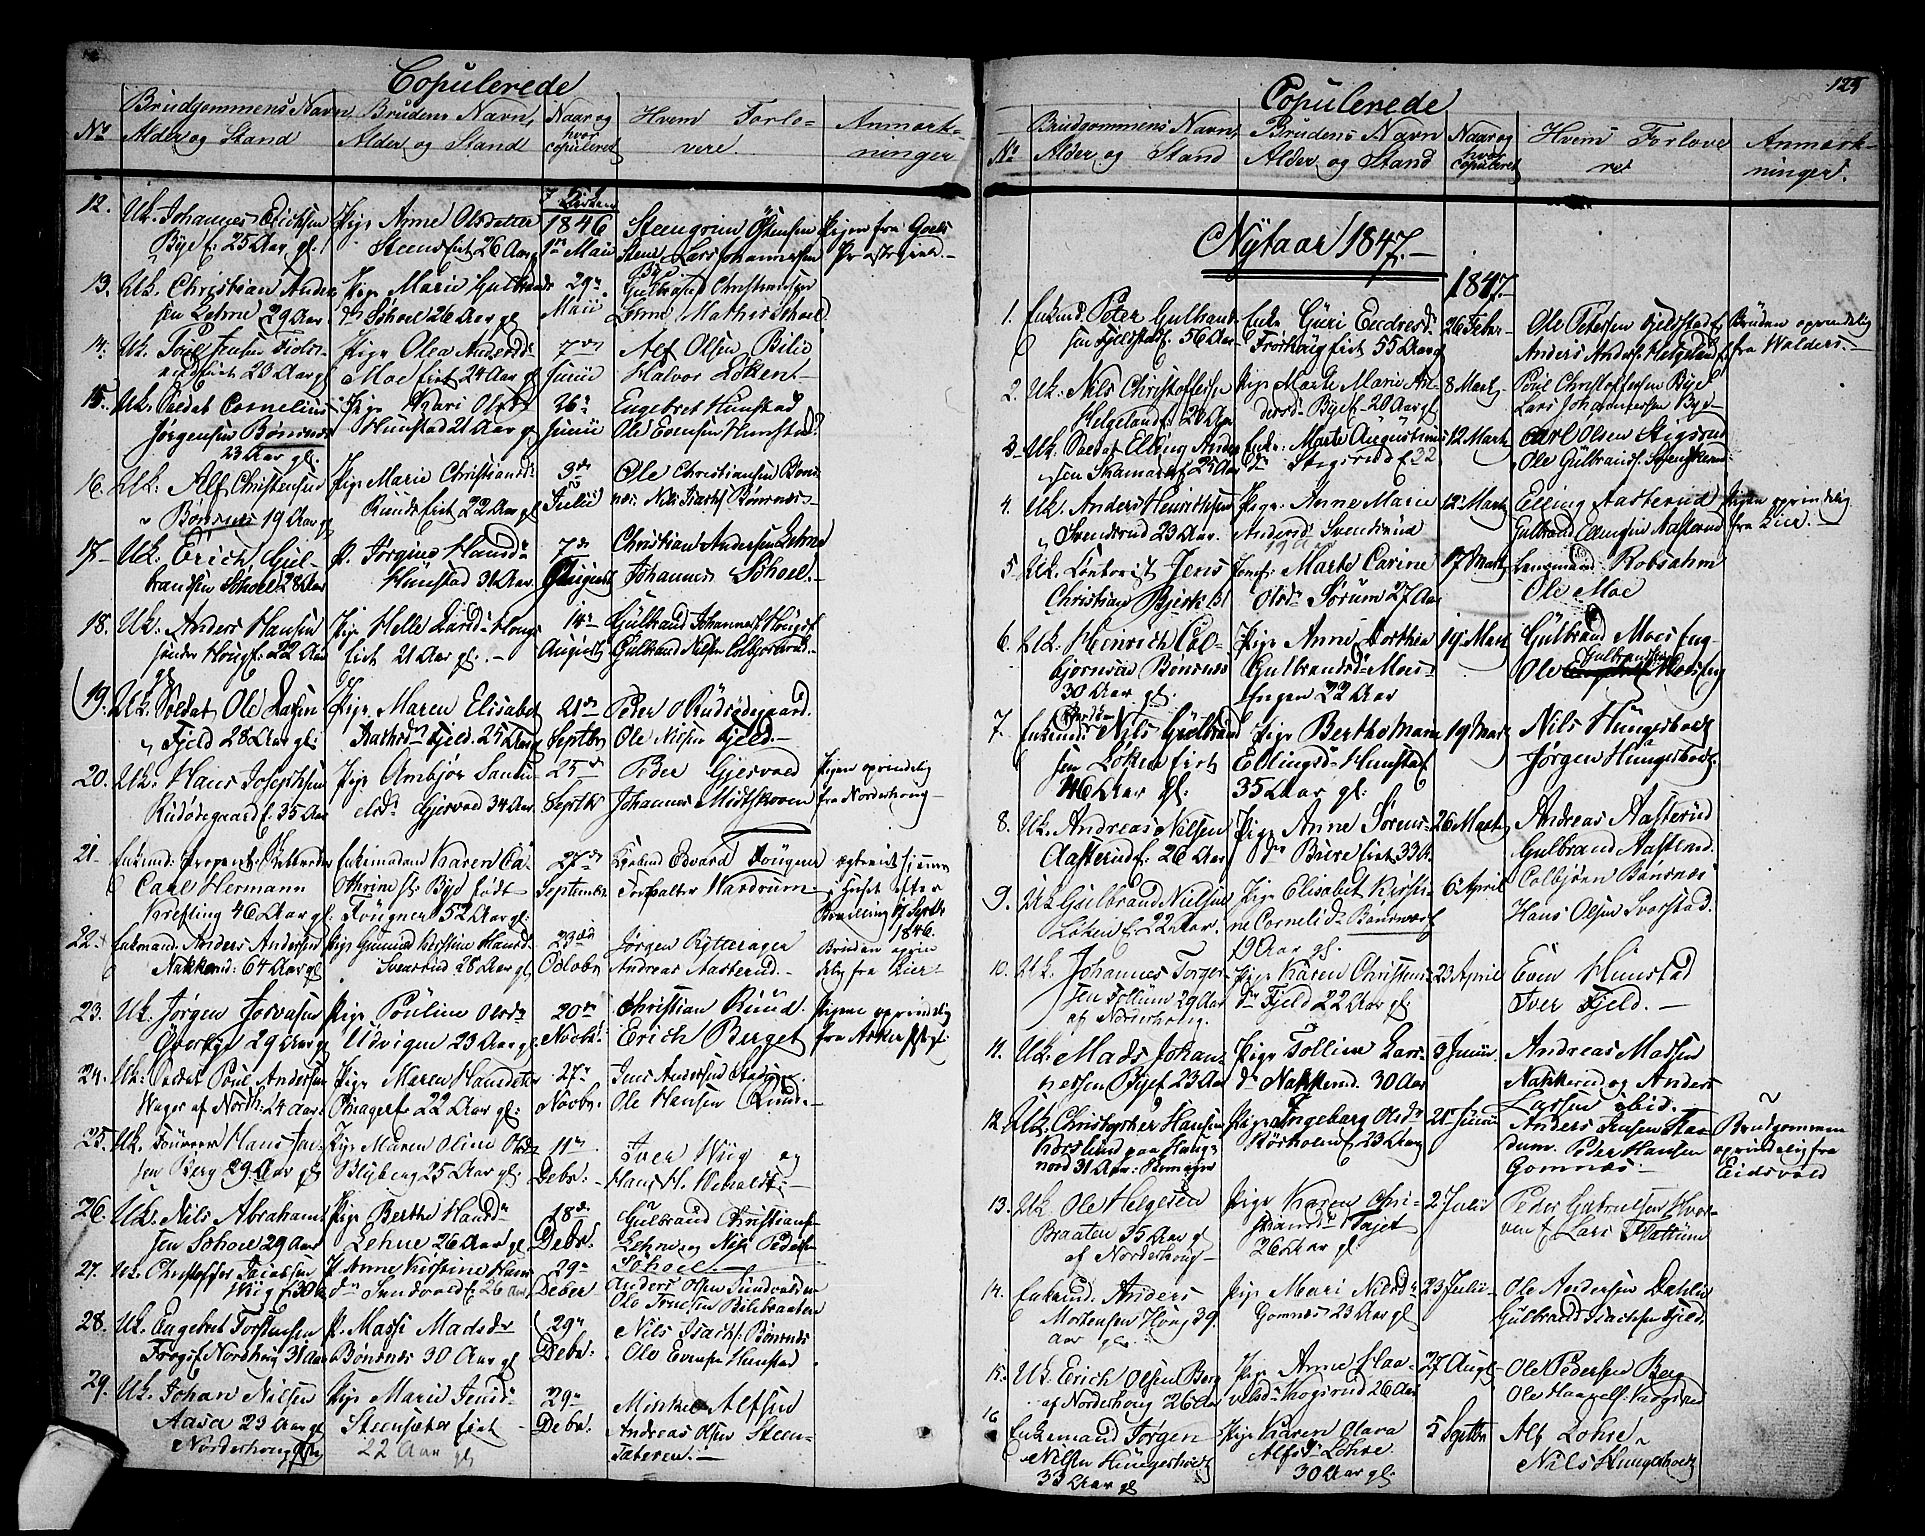 Copulerede
No
Brudgommens Navn, Alder og Stand
Brudens Navn, Alder og Stand
Naar og hvor copuleret
Hvem Forlovere
Anmærkninger
12. Uk. Johannes Erichsen
Bye f: 25 Aar gl.
Pige Anne Olsdatter
Steens eiet 26 Aar
1846
1ste Maii
Steengrim
Lars Johannessen Bye
Pigen fra Gols
Præstegield.
13. Uk. Christian Andersen
Lehne 29 Aar
Pige Marie Gulbrands
dr Sohoel 26 Aar gl
29de
Maii
Gulbrand Christiansen
Lehne Mathis Sohoel.
14. Uk. Poul Jensen
eiet 23 Aar gl
Pige Olea Andersdr
Moe eiet 24 Aar gl
7de
Junii
Alf Olsen Bilie
Halvor Løken
15. Uk. Soldat Cornelius
Jørgensen Bønsnæs
23 Aar gl.
Pige Kari Olsdr
Hunstad 21 Aar gl
26de
Junii
Engebret Hunstad
Ole Evensen Hunstad
16. Uk. Alf Christensen
Bønsnes 19 Aar gl
Pige Marie Christiansdr
Ruuds eiet 22 Aar gl
3de
Julii
Ole Christiansen Bøns
næs. Nils Isachs: Bønsnæs
17. Uk. Erich Gul-
brandsen Sohoel 28 Aar
P. Jørgine Hansdr
Hunstad 31 Aar
7de
August
Christian Andersen Lehne
Johannes Sohoel.
18. Uk. Anders Hansen
søndre Houg f: 22 Aar
Pige Helle Larsdr Hougs
eiet 21 Aar gl.
14de
August
Gulbrand Johannes: Hougs
Gulbrand Nilsen
19. Uk. Soldat Ole Larsen
Fjeld 28 Aar gl.
Pige Maren Elisabet
Fjeld. 25 Aar
21de
Septbr
Peder Rudsødegaard.
Ole Nilsen Fjeld.
20. Uk. Hans Josephsen
Rudødegaard f. 35 Aar
Pige Anebjør Samu-
elsdr Gjesvold 34 Aar
25de
Septbr
Peder Gjesvold
Johannes Midtskoven
Pigen oprindelig
fra Norderhoug
21. Enkemd: Proprent:
Carl Hermann
Krefting 46 Aar gl.
Enkemadame Karen Ca-
thrine Sl: Bye født
Fougner 52 Aar gl:
27de
September
Edvard Fougner
Wardrum
viede hjemme
i Huset efter
Bevilling
1846.
22. Enkemd: Anders Andersen
Nakkerud: 64 Aar gl
Pige Gunild Kirstine Hansdr
Svarsrud 28 Aar gl.
23de
Octobr
Jørgen Rytterager
Andreas Aasterud.
Bruden oprin
delig fra Lier
23. Uk. Jørgen
29 Aar gl
Pige Pouline Olsdr
Udvigen 23 Aar gl
20de
Novbr
Christian Ruud.
Erich Berget
Pigen oprindelig
fra Asker
24. Uk. Soldat Poul Andersen
Wager af Nordh: 24 Aar
Pige Maren Hansdatter
22 Aar gl:
27de
Novbr:
Jens Andersen
Ole Hansen Ruud.
25. Uk. Hans
Berg 29. Aar gl
Pige Maren Oline Olsdr
Blyberg 25 Aar gl:
11te
Debr:
Iver Wiig og
Hans H.
26. Uk. Nils Abraham-
sen Sohoel 29 Aar
Pige Berthe Hansdr
Lehne 26 Aar gl
18de
Debr:
Gulbrand Christians:
Lehne og Nils Peders:
Sohoel.
27. Uk. Christoffer Jacobsen
Wiig 30
P. Anne Kirstine Hans
dr Sundvold f. 26 Aar
29de
Deber
Anders Olsen Sundvolden
Ole Bilebraaten
28. Uk. Engebret Torstensen
Frogs: Nordhoug 31 Aar
P. Massi Madsdr
Bønsnes 30 Aar gl
29de
Debr:
Nils Isachs: Bønsnes
Ole Evensen Hunstad
29. Uk. Johan Nilsen
Aasa 23 Aar gl
Norderhoug
Pige Marie
Steensæter eiet
22 Aar gl
29de
Debr.
Minkel Alfsen
Andreas Olsen Steen-
sæteren.
124
Copulerede
No
Brudgommens Navn, Alder og Stand
Brudens Navn Alder og Stand
Naar og hvor copuleret
Hvem Forlovere
Anmærkninger.
Nytaar 1847.
1847.
1. Enkemd: Peter Gulbrand-
sen Fjelstad f. 56 Aar
Enke. Guri Endresdr
Froshoug eiet 55 Aar gl
26 Febr
Ole Petersen Fjeldstad f.
Anders Anders: Helgeland f.
Bruden oprindelig
fra Walders.
2. Uk: Nils Christoffersen
Helgeland f: 20 Aar
Pige Marte Marie An-
dersdr Bye f. 20 Aar gl
8 Marts
Poul Christoffersen Bye
Lars Johannessen Bye
3. Uk. Soldat Elling Anders
sen f. 25 Aar
Enke: Marte Augustinus
dr Stigsrud f. 32
12 Marts
Carl Olsen Stigsrud
Ole Gulbrands:
4. Uk. Anders Henrichsen
Svensrud 23 Aar.
Pige. Anne Marie
Andersdr Svensrud
19 Aar
12 Marts
Elling Aasterud
Gulbrand Ellingsen Aasterud
Pigen oprindelig
fra Lier.
5. Uk. Jens
Christian Bjerk
Jomf: Marte Carine
Olsdr Sørum 27 Aar
17 Marts
Lensmand Robsahm
Ole Moe
6. Uk. Heinrich Col-
bjørnsen Bønsnes
30 Aar gl.
Pige Anne Dorthea
Gulbrandsdr Moes-
Engen 22 Aar
19 Marts
Gulbrand Moes Eng-
Ole Gulbrandsen Moseng
7. Enkemd: Nils Gulbrand
sen Løken eiet
46 Aar gl:
Pige Berthe Marie
Ellingsdr Hunstad
35 Aar gl:
19 Marts
Nils Hungerholt
Jørgen Hungerholt.
8. Uk. Andreas Nilsen
Aasterud f: 26 Aar
Pige Anne Sørens-
dr Bure eiet 33 A.
26 Marts
Andreas Aasterud
Gulbrand Aasterud.
9. Uk Gulbrand Nielsen
Løken f. 22 Aar.
Pige Elisabet Kirsti-
ne Cornelidr Bønsnæs f
19 Aar gl.
6 April
Colbjørn Bønsnæs
Hans Olsen Svarstad.
10. Uk. Johannes Torger
sen Follum 29 Aar
af Norderhoug.
Pige Karen Christens-
dr Fjeld 22 Aar gl:
23 April
Even Hunstad
Iver Fjeld.
11. Uk. Mads Johan-
nessen Bye f. 23 Aar
Pige Tolline Lars-
dr Nakkerud. 30 Aar
3 Junii
Andreas Madsen
Nakkerud og Anders
Larsen ibid.
12. Uk. Christopher Hansen
31 Aar.
Pige Ingeborg Olsdr
Kørsholm f. 23 Aar gl
21 Junii
Anders Jensen
Peder Hansen
Gomnæs.
Brudgommen
oprindelig fra
Eidsvold
13. Uk Ole Helgesen
Braaten 35 Aar gl
af Norderhoug
Pige Karen Chri-
stiansdr
26 Aar gl.
2 Julii
Peder Gabrielsen
Lars Flattum
14. Enkemd. Anders
Mortensen Houg 39.
Aar gl.
Pige Mari Nilsdr
Gomnæs 23 Aar gl.
23 Julii
Ole Andersen Dahlen
Gulbrand Isachsen Fjeld.
15. Uk. Erich Olsen Berg
af Norderhoug 26 Aar
Pige Anne Haa-
velsdr Kogsrud 26 Aar
27 Augs
Ole Pedersen Berg
Ole Haavels: Kogsrud
16 Enkemand Jørgen
Nilsen Hungerholt
33 Aar gl
Pige Karen Olava
Alfsdr Lohre
30 Aar gl.
5 Septbr
Alf Lohre
Nils Hungerholt